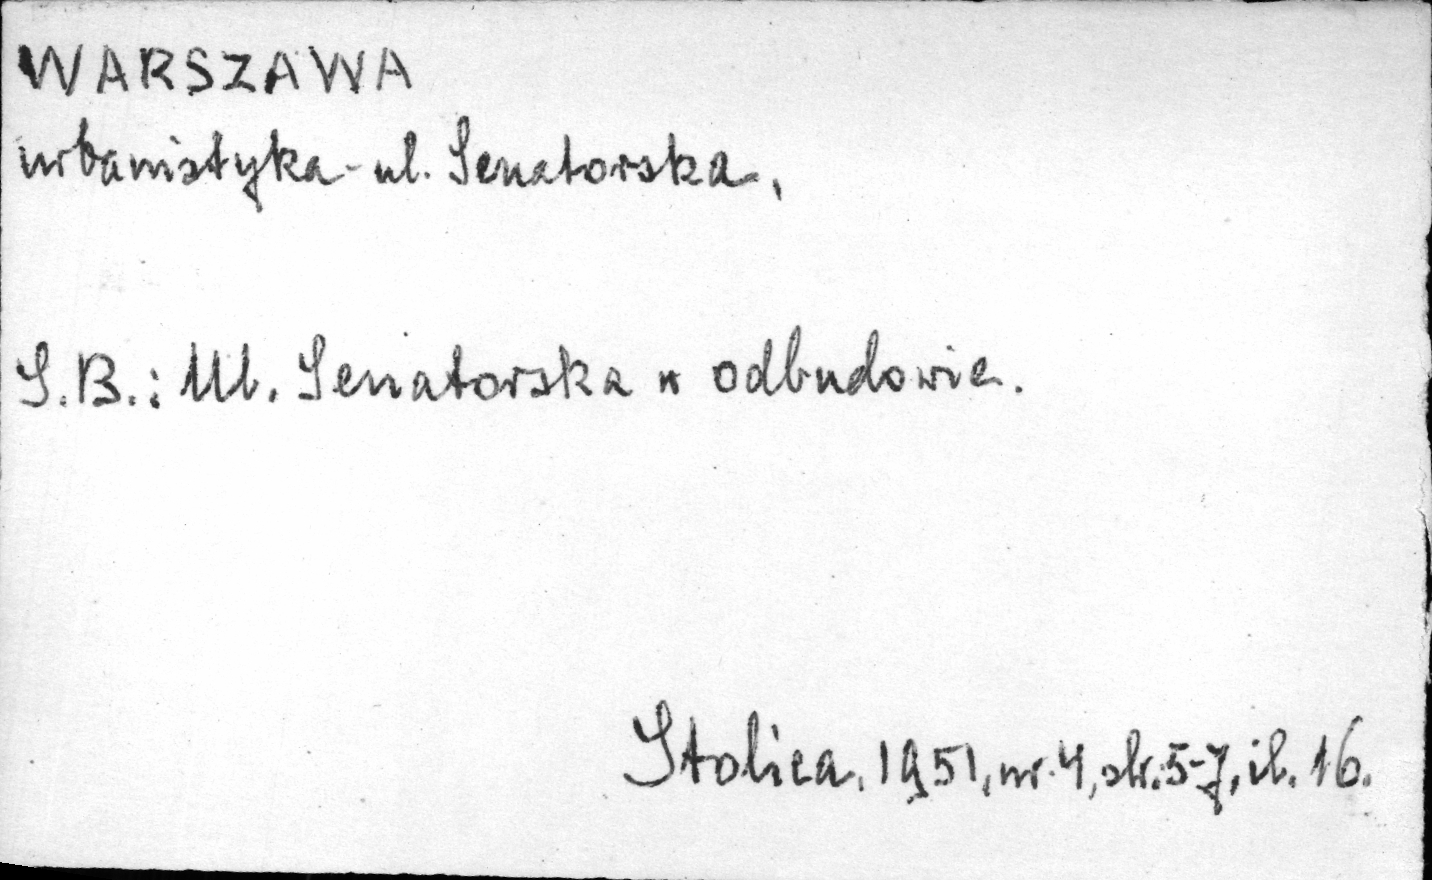 WARSZAWA
urbanistyka - ul. Senatorska,
S.B.: Ul. Senatorska w odbudowie.
Stolica, 1951, nr. 4, str. 5-7, il. 16.